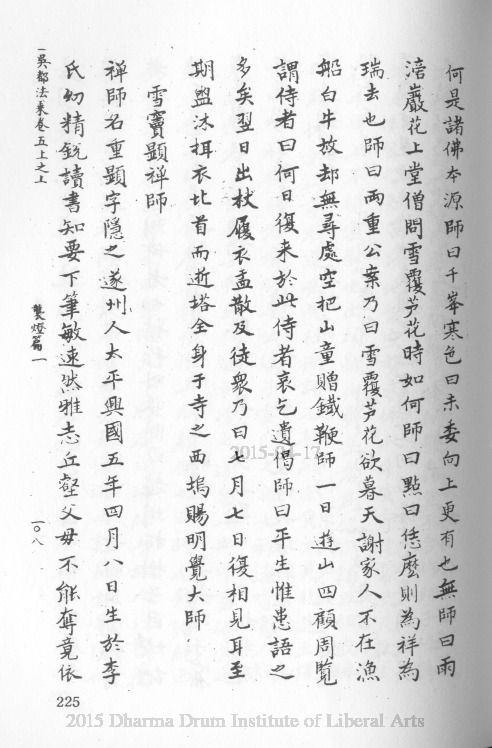 何是諸佛本源師曰千峯寒色曰未委向上更有也無師曰雨
涪巖花上堂僧問雪覆芦花時如何師曰點曰恁麼則為祥為
瑞去也師曰兩重公案乃曰雪覆芦花欲暮天謝家人不在漁
船白牛放却無尋處空把山童贈鐵鞭師一日遊山四顧周覧
謂侍者曰何日復来於此侍者哀乞遺偈師曰平生惟患語之
多矣翌日出杖屨衣盂散及徒衆乃曰七月七日復相見耳至
期盥沐摂衣北首而逝塔全身于寺之西塢賜明覺大師
雪竇顯禪師
禅師名重顯字隱之遂州人太平興國五年四月八日生於李
氏幼精銳讀書知要下筆敏速然雅志丘壑父毋不能奪竟依
吳都法乘卷五上之上
襲燈篇一
一〇八
225
2015-04-17
2015 Dharma Drum Institute of Liberal Arts